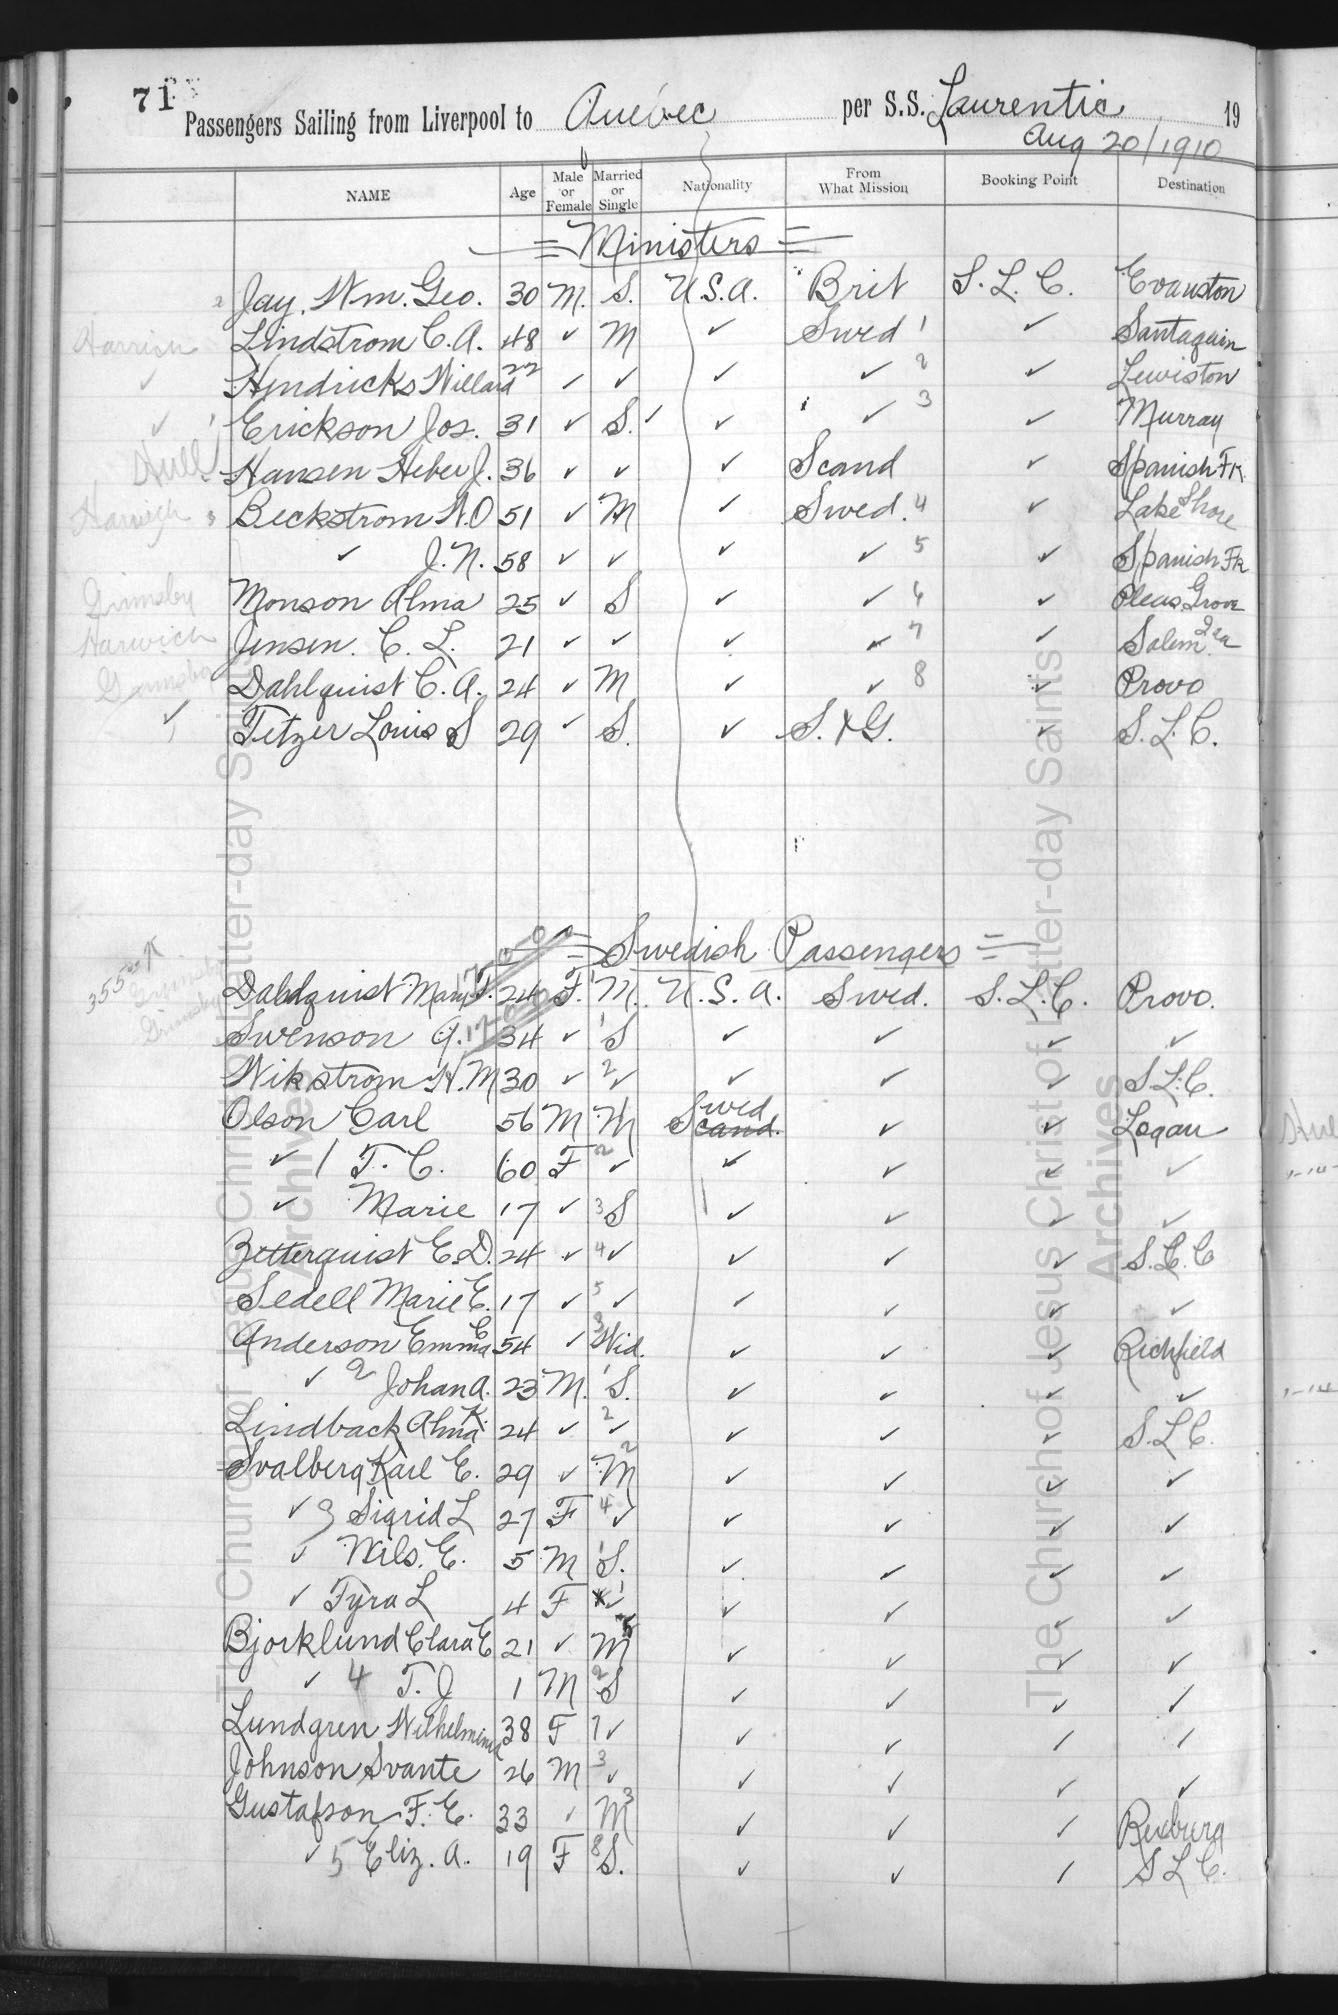 71
Passengers Sailing from Liverpool to Quebec per S.S. Laurentic 19
Aug 20/1910
NAME Age Male or Female Married or Single Nationality From What Mission Booking Point Destination
= Ministers =
Jay, Wm. Geo. 30 M. S. U.S.A. Brit S. L. C. Evanston
Lindstrom C. A. 48 ✓ M ✓ Swed 1 ✓ Santaquin
✓ Hendricks Willard 22 ✓ ✓ ✓ ✓ 2 ✓ Lewiston
✓ Erickson Jos. 31 ✓ S. ✓ ✓ ✓ 3 ✓ Murray
Hull Hansen Heber J. 36 ✓ ✓ ✓ Scand ✓ Spanish Fk.
Beckstrom N. O 51 ✓ M ✓ Swed. 4 ✓ Lake Shore
✓ J. N. 58 ✓ ✓ ✓ ✓ 5 ✓ Spanish Fk
Grimsby Monson Alma 25 ✓ S ✓ ✓ 6 ✓ Pleas Grove
Harwich Jensen. C. L. 21 ✓ ✓ ✓ ✓ 7 ✓ Salem
Grimsby Dahlquist C. A. 24 ✓ M ✓ ✓ 8 ✓ Provo
✓ Fetzer Louis S 29 ✓ S. ✓ S. & G. ✓ S. L. C.
= Swedish Passengers =
Grimsby Dahlquist Mary F. 24 F. M. U. S. A. Swed. S. L. C. Provo.
Grimsby Swenson A. 34 ✓ 1 S ✓ ✓ ✓ ✓
Wikstrom H. M 30 ✓ 2 ✓ ✓ ✓ ✓ S. L. C.
Olson Carl 56 M M Swed Scand. ✓ ✓ Logan
✓ 1 T. C. 60 F 2 ✓ ✓ ✓ ✓ ✓
✓ Marie 17 ✓ 3 S ✓ ✓ ✓ ✓
Zetterquist E. D. 24 ✓ 4 ✓ ✓ ✓ ✓ S. L. C
Sedell Marie E. 17 ✓ 5 ✓ ✓ ✓ ✓ ✓
Anderson Emma C 54 ✓ 3 Wid. ✓ ✓ ✓ Richfield
✓ 2 Johan A. 23 M. 1 S. ✓ ✓ ✓ ✓
Lindback Alma K. 24 ✓ 2 ✓ ✓ ✓ ✓ S. L. C.
Svalberg Karl E. 29 ✓ M 2 ✓ ✓ ✓ ✓
✓ 3 Sigrid L 27 F 4 ✓ ✓ ✓ ✓ ✓
✓ Nils. E. 5 M 1 S. ✓ ✓ ✓ ✓
✓ Tyra L 4 F 1 ✓ ✓ ✓ ✓ ✓
Bjorklund Clara E 21 ✓ M ✓ ✓ ✓ ✓
✓ 4 T. J 1 M 2 S ✓ ✓ ✓ ✓
Lundgren Wilhelmina 38 F 7 ✓ ✓ ✓ ✓ ✓
Johnson Svante 26 M 3 ✓ ✓ ✓ ✓ ✓
Gustafson F. E. 33 ✓ M 3 ✓ ✓ ✓ Rexburg
✓ 5 Eliz. A. 19 F 8 S. ✓ ✓ ✓ S L C.
The Church of Jesus Christ of Latter-day Saints
Archives
The Church of Jesus Christ of Latter-day Saints
Archives